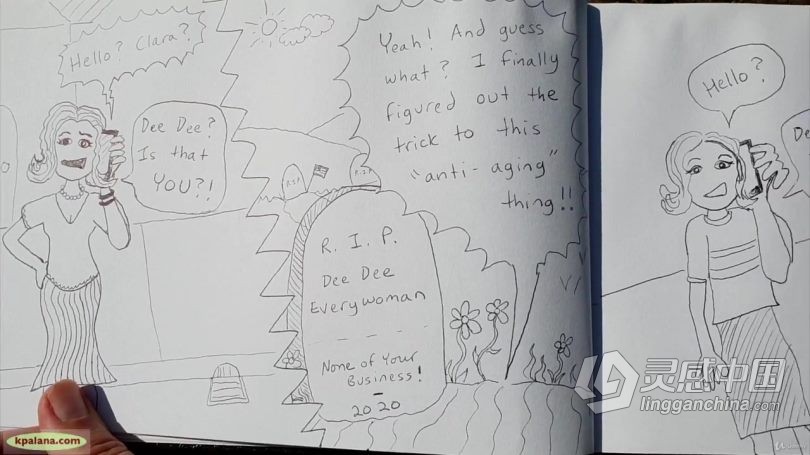 Hello? Clara?
Dee Dee?
Is that
YOU?!
Yeah! And guess
what? I finally
figured out the
trick to this
"anti-aging"
thing!!
R.I.P.
R.I.P.
R. I. P.
Dee Dee
Everywoman
None of Your
Business!
–
2020
Hello?
De
kpalana.com
灵感中国
lingganchina.com